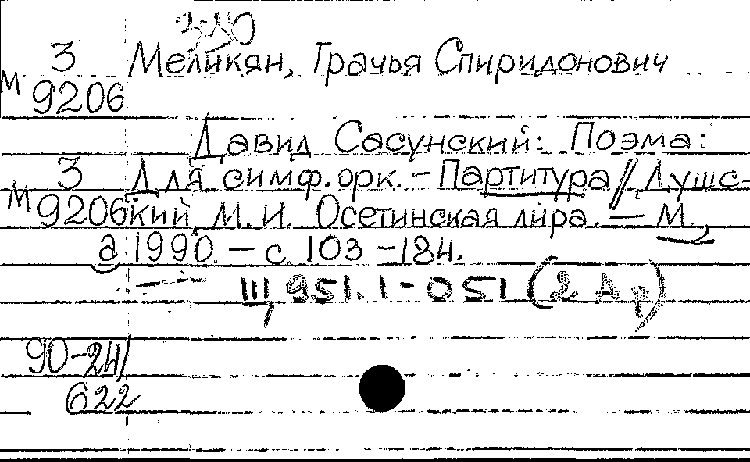 3-20
3 Меликян, Грачья Спиридонович
М 9206
Давид Сасунский: Поэма:
3 Для симф. орк. - Партитура // Душс-
М 9206 кий М. И. Осетинская лира. — М.,
а 1990. — с 103 - 184.
Щ 951.1-051 (2 Ар)
90-24/
622